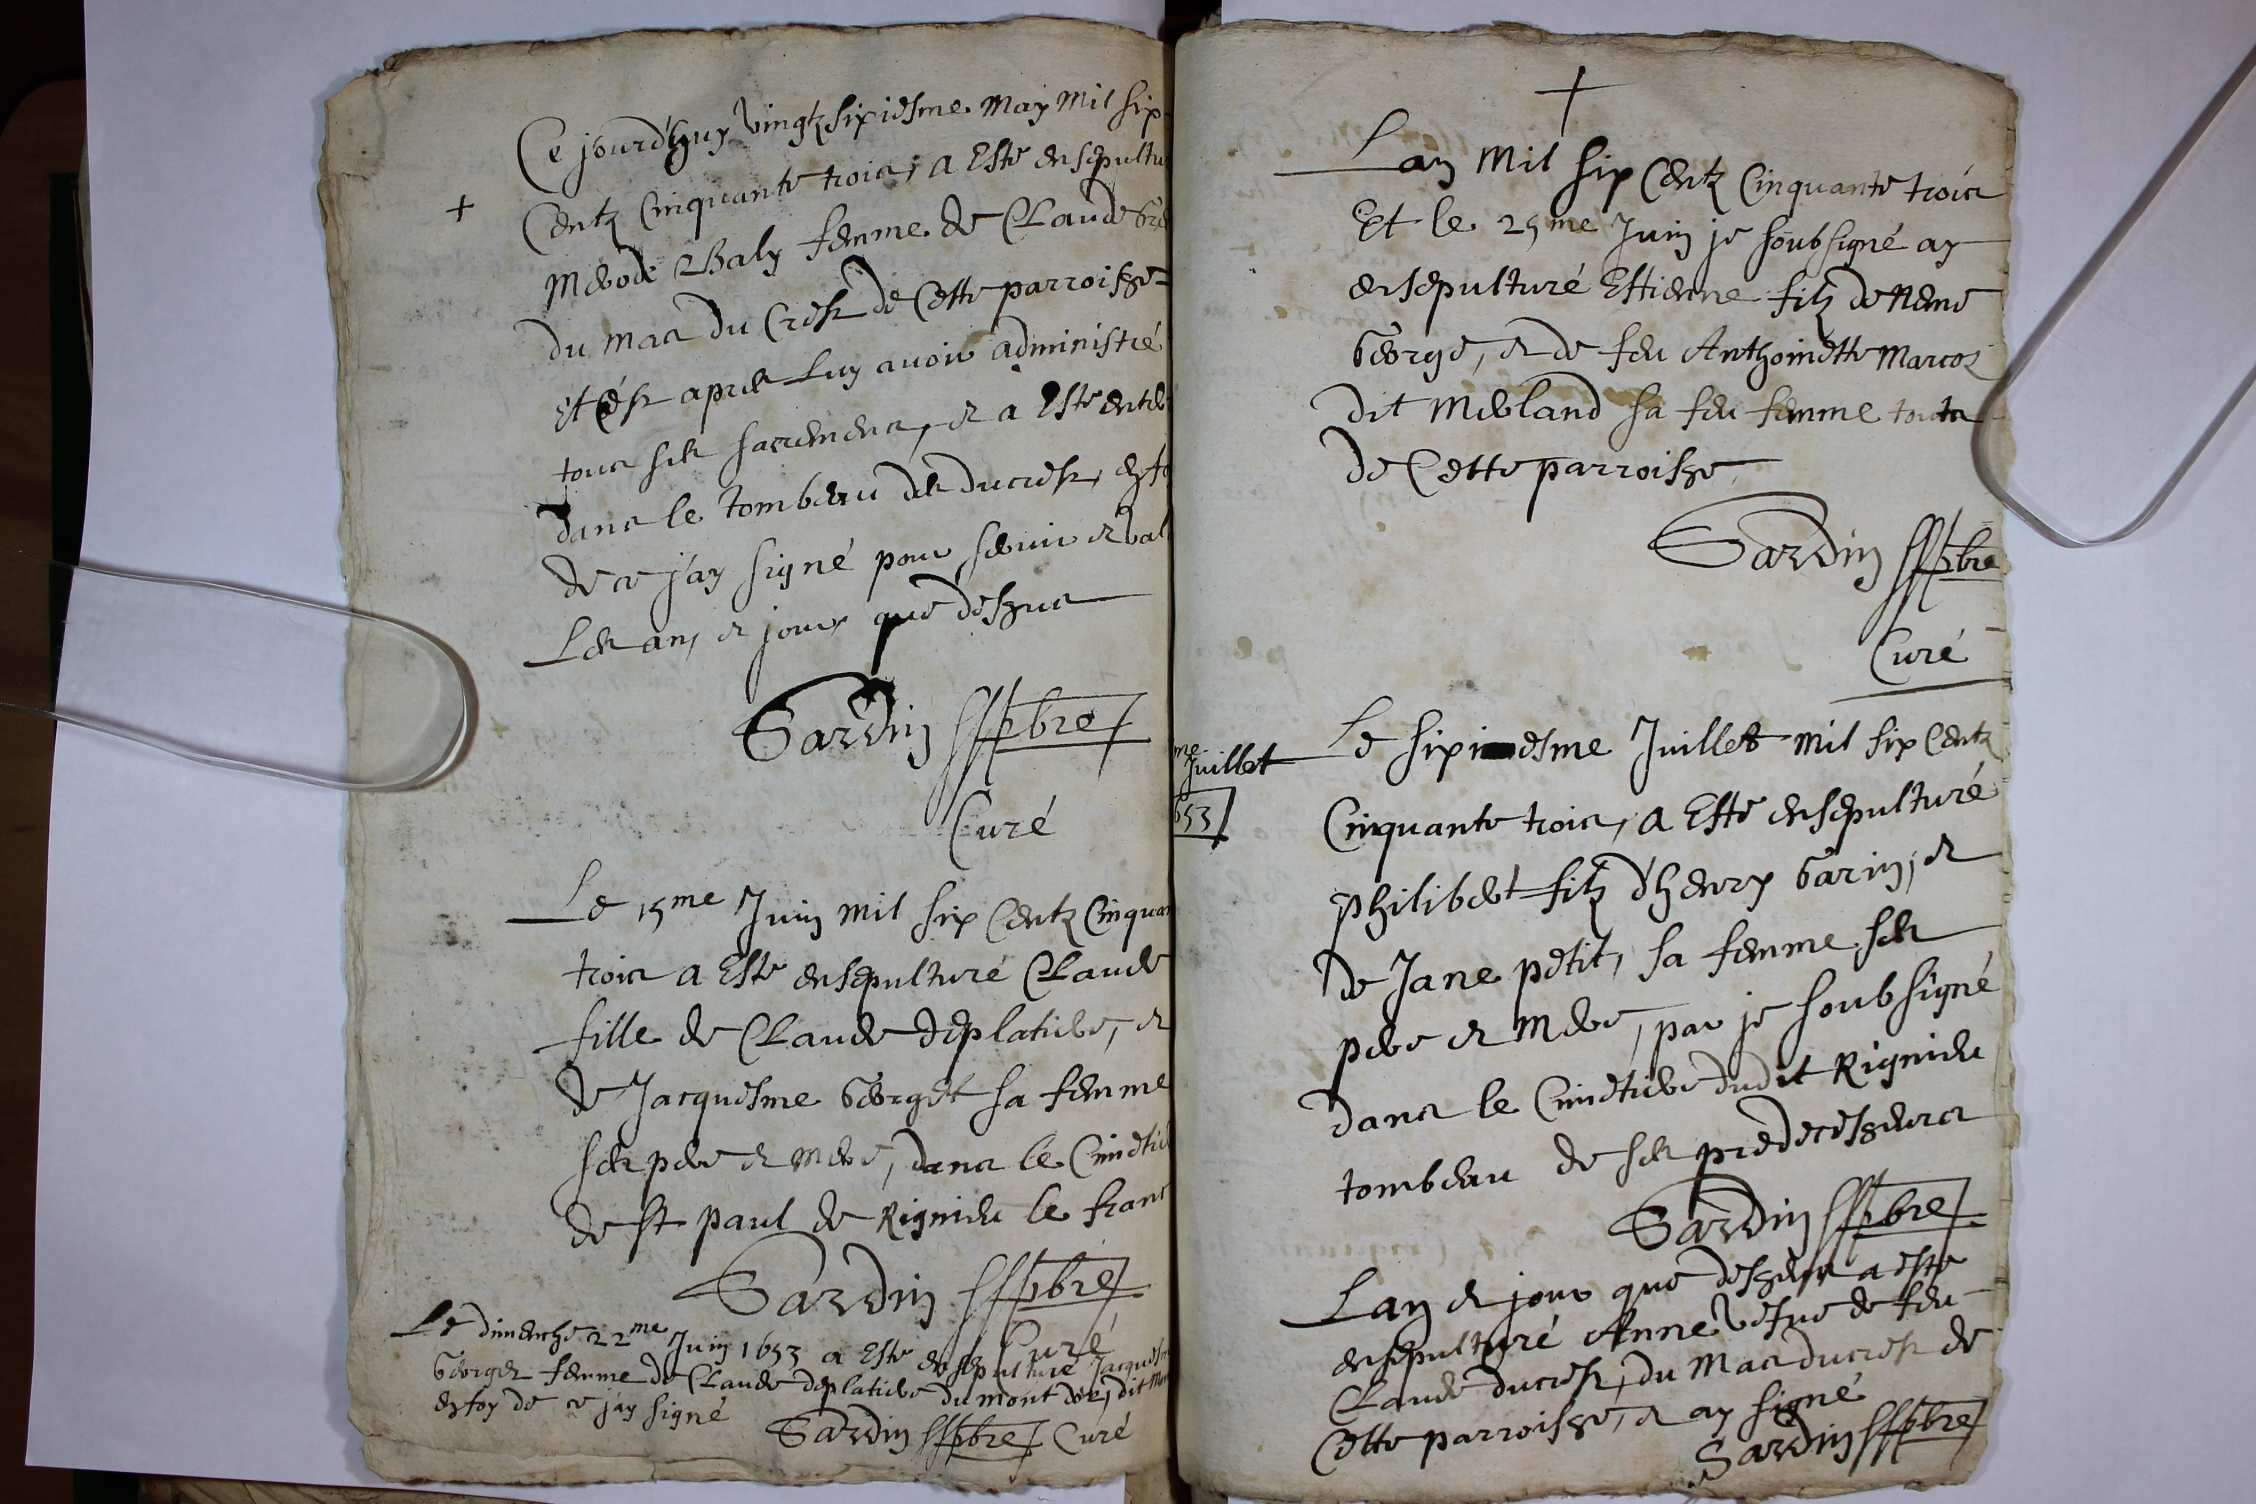 Ce jourdhuy vingtz sixiesme may mil six
+
Centz Cinquante trois, a Esté ensepultu
femme de Claude
du mas du Crest de Cette parroisse
et c'est apres Luy avoir administré
tous ses sacremens, et a Esté enter
dans le tombeau des ducrest, en fo
de ce j'ay signé pour servir et val
Les an, et jour que dessus
Sardin pbre
Curé
Le 15me Juin mil six Centz Cinquan
trois a Esté ensepulturé Claude
fille de Claude deplatiere, et
de Jacquesme George sa femme
ses pere et mere, dans le Cimetie
de st paul de Rignieu le franc
Sardin pbre
Curé
Le dimenche 22me Juin 1653 a Esté ensepulturé Jacquesm
George femme de Claude deplatiere du mont dor, dit
en foy de ce j'ay signé
Sardin pbre Curé
+
Lan mil six Centz Cinquante trois
Et le 25me Juin je soubsigné ay
ensepulturé Estienne filz de
George, et de feu Anthoinette
dit Merland sa feu femme touts
de Cette parroisse
Sardin pbre
Curé
me
Juillet
653
Le sixiesme Juillet mil six Centz
Cinquante trois, a Esté ensepulturé
philibert filz d'henry Garin, et
de Jane petit, sa femme ses
pere et mere, par je soubsigné
dans le Cimetiere dudit Rignieu
tombeau de ses predecesseurs
Sardin pbre
Lan et jour que dessus a esté
ensepulturé Anne vefue de feu
Claude ducrest, du Mas ducrest de
Cette parroisse, et ay signé
Sardin pbre